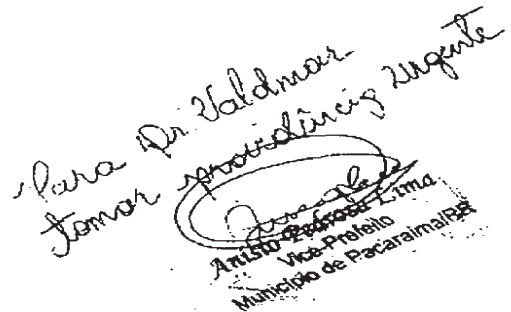 Para Dr. Valdmar
tomar providências urgente
Anisio Pedrosa Lima
Vice-Prefeito
Município de Pacaraima/RR